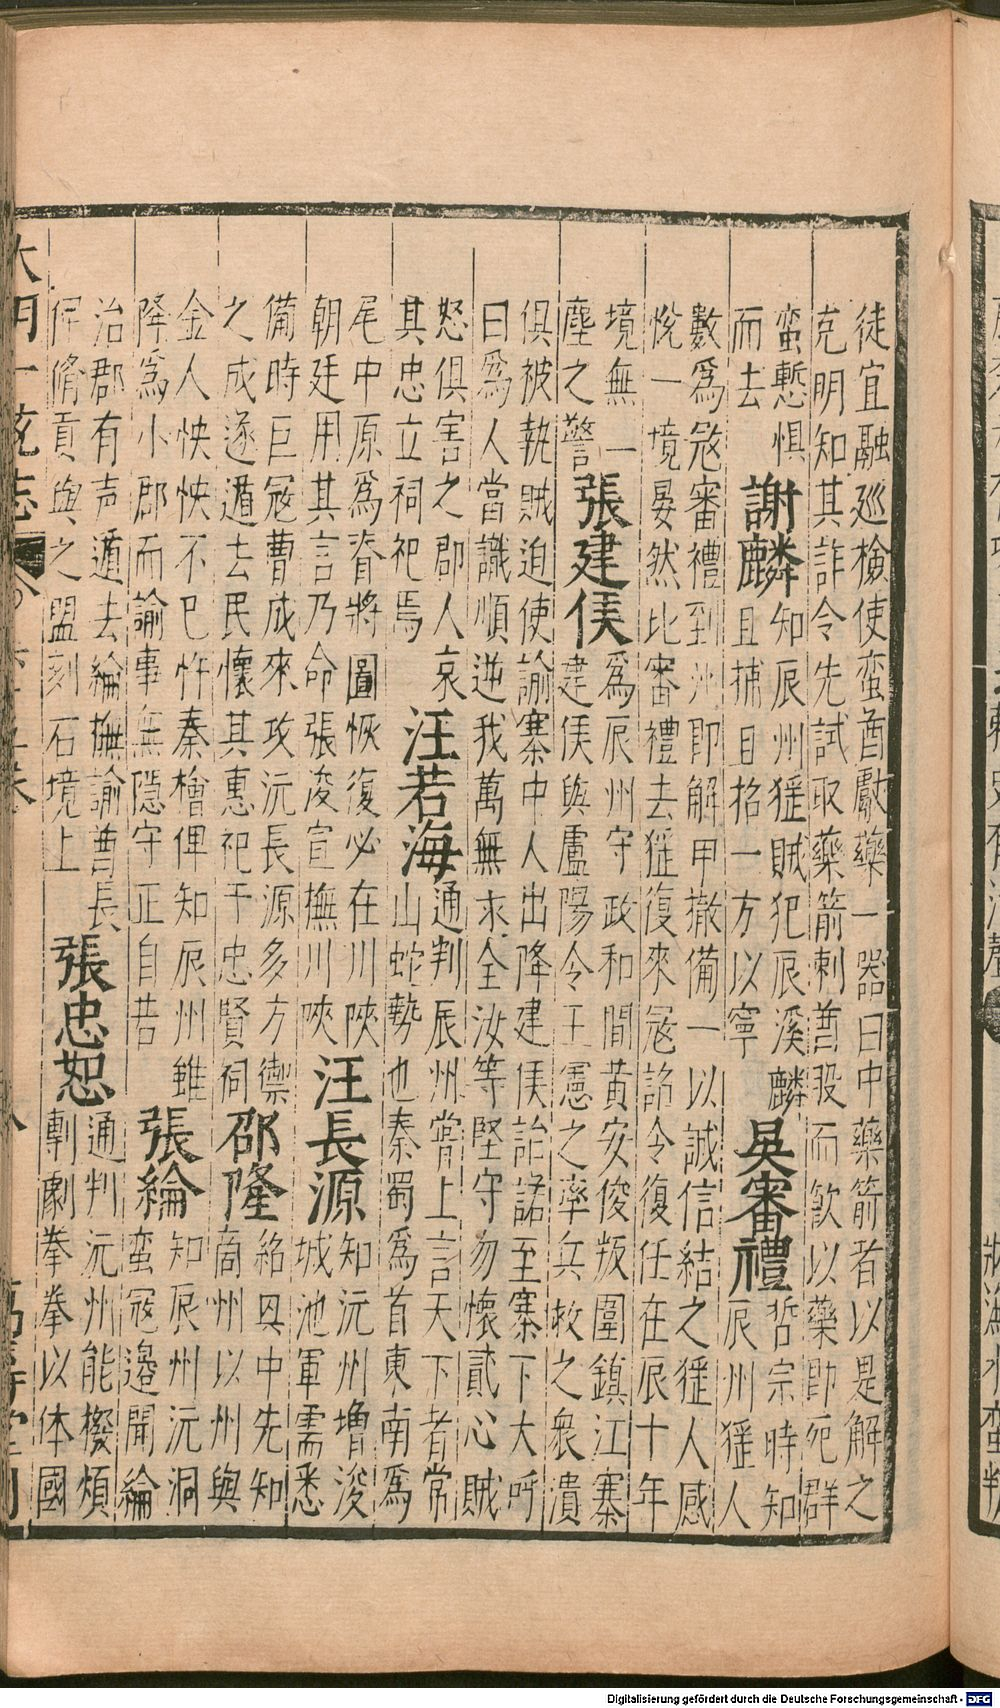 徒宜融巡檢使蛮酋獻藥一器曰中藥箭者以是解之
克明知其詐令先試取藥箭刺酋股而飲以藥即死群
蛮慙惧
而去
謝麟
知辰州猺賊犯辰溪麟
且捕且招一方以寧
吳審禮
哲宗時知
辰州猺人
數為寇審禮到州即解甲撤備一以誠信結之猺人感
悅一境晏然比審禮去猺復來寇詔令復任在辰十年
境無一
塵之警
張建侯
為辰州守政和間黃安俊叛圍鎮江寨
建侯與盧陽令王憲之率兵救之衆潰
俱被執賊迫使諭寨中人出降建侯詒諾至寨下大呼
曰為人當識順逆我萬無求全汝等堅守勿懷貳心賊
怒俱害之郡人哀
其忠立祠祀焉
汪若海
通判辰州嘗上言天下者常
山蛇勢也秦蜀為首東南為
尾中原為脊將圖恢復必在川陝
朝廷用其言乃命張浚宣撫川陝
汪長源
知沅州增浚
城池軍需悉
備時巨寇曹成來攻沅長源多方禦
之成遂遁去民懷其惠祀于忠賢祠
邵隆
紹興中先知
商州以州與
金人怏怏不已忤秦檜俾知辰州雖
降為小郡而諭事無隱守正自若
張綸
知辰州沅洞
蛮寇邊聞綸
治郡有声遁去綸撫諭酋長
俾脩貢與之盟刻石境上
張忠恕
通判沅州能櫻煩
剸劇拳拳以体國
大明一統志